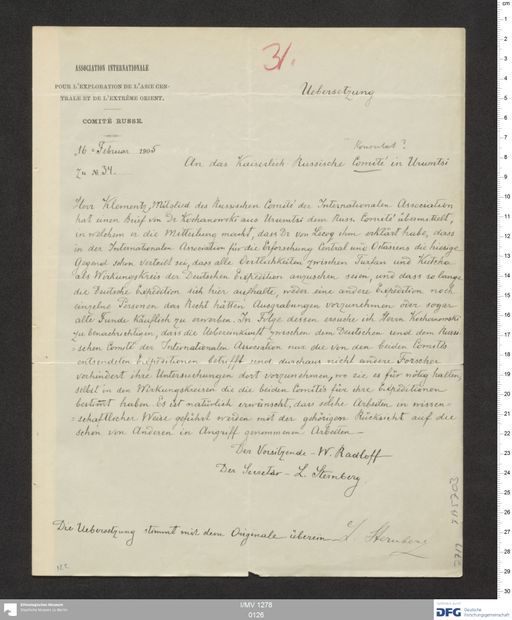 31.
ASSOCIATION INTERNATIONALE
POUR L'EXPLORATION DE L'ASIE CEN-
TRALE ET DE L'EXTRÊME ORIENT.
COMITÉ RUSSE.
Uebersetzung
16 Februar 1905
Zu № 34.
Konsulat?
An das Kaiserlich Russische Comité in Urumtsi
Herr Klementz, Mitglied des Russischen Comité der Internationalen Association
hat einen Brief von Dr Kochanowski aus Urumtsi dem Russ. Comité übermittelt,
in welchem er die Mitteilung macht, dass Dr von Lecoq ihm erklärt habe, dass
in der Internationalen Association für die Erforschung Central und Ostasiens die hiesige
Gegend schon verteilt sei, dass alle Oertlichkeiten zwischen Turfan und Kutscha
als Wirkungskreis der Deutschen Expedition anzusehen seien, und dass so lange
die Deutsche Expedition sich hier aufhalte, weder eine andere Expedition noch
einzelne Personen das Recht hätten Ausgrabungen vorzunehmen oder sogar
alte Funde käuflich zu erwerben. In Folge dessen ersuche ich Herrn Kochanowski
zu benachrichtigen, dass die Uebereinkunft zwischen dem Deutschen und dem Russi-
schen Comité der Internationalen Association nur die von den beiden Comités
entsendeten Expeditionen betrifft und durchaus nicht andere Forscher
verhindert ihre Untersuchungen dort vorzunehmen, wo sie es für nötig halten,
selbst in den Wirkungskreisen die die beiden Comités für ihre Expeditionen
bestimmt haben. Es ist natürlich erwünscht, dass solche Arbeiten in wissen-
schaftlicher Weise geführt werden mit der gehörigen Rücksicht auf die
schon von Anderen in Angriff genommenen Arbeiten
Der Vorsitzende - W. Radloff
Der Secretär - L. Sternberg.
Die Uebersetzung stimmt mit dem Originale überein L. Sternberg
Ethnologisches Museum
Staatliche Museen zu Berlin
I/MV 1278
0126
DFG Deutsche
Forschungsgemeinschaft